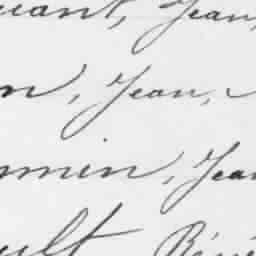 uant, Jean,
n, Jean,
nmin, Jean
ult Réné